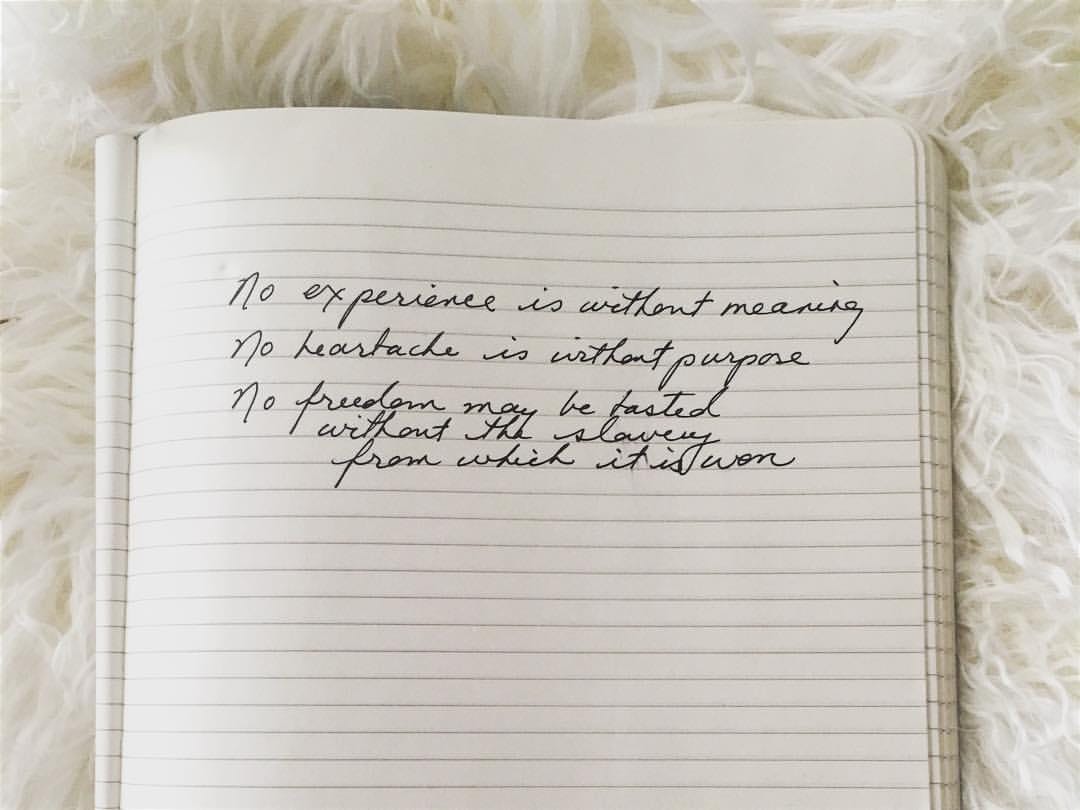 No experience is without meaning
No heartache is without purpose
No freedom may be tasted
without the slavery
from which it is won